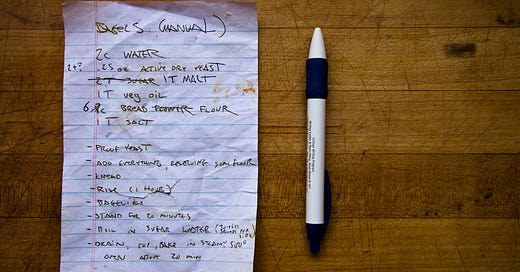 BAGELS (MANUAL)
2c WATER
2t? .25 oz ACTIVE DRY YEAST
2T SUGAR 1T MALT
1T veg oil
6 c BREAD FLOWER FLOUR
1T SALT
- PROOF YEAST
- ADD EVERYTHING, RESERVING SOME FLOUR
- KNEAD
- RISE (1 HOUR)
- BAGELIZE
- STAND FOR 20 MINUTES
- BOIL IN SUGAR WATER (
- DRAIN, BAKE IN STEAMY 500°
OVEN ABOUT 20 MIN